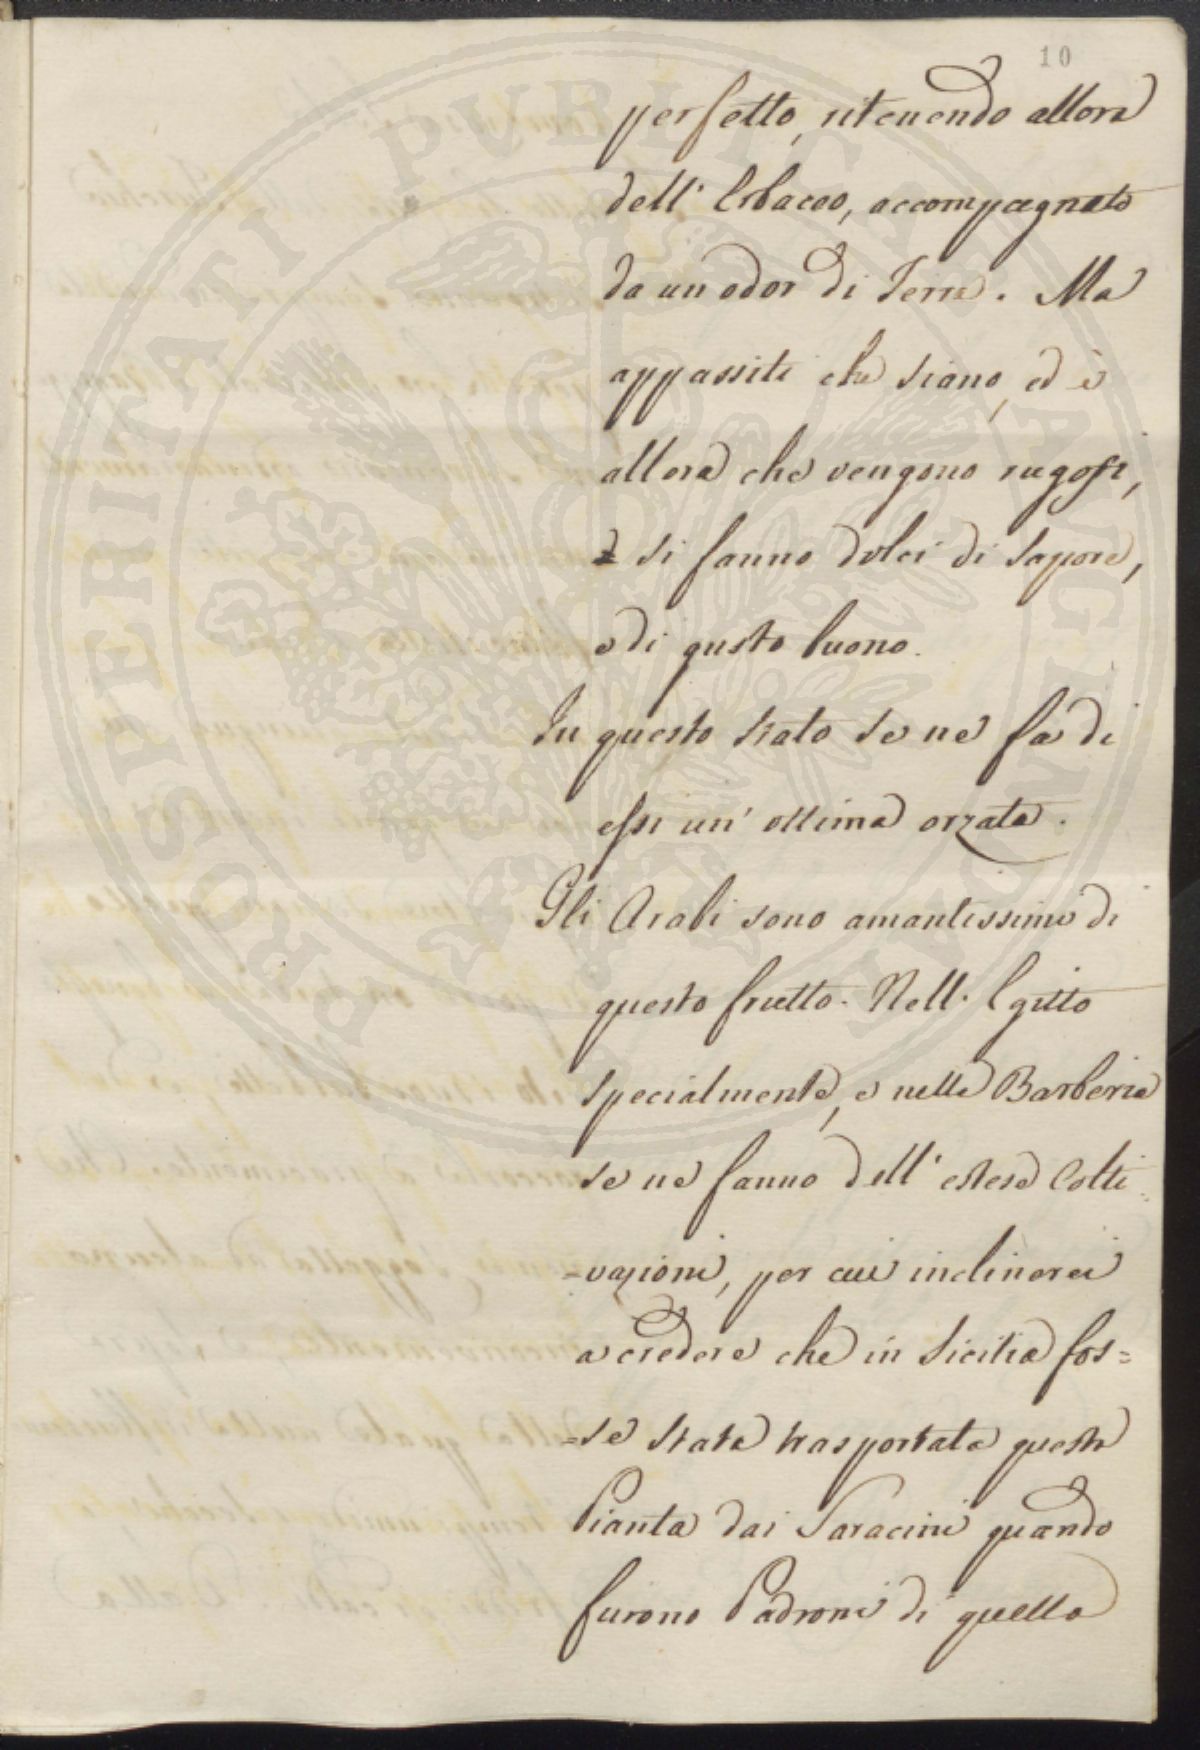 10
perfetto, ritenendo allora
dell' Erbaceo, accompagnato
da un odor di Terra. Ma
appassiti che siano, ed è
allora che vengono rugosi,
si fanno dolci di sapore,
e di gusto buono.
In questo stato se ne fà di
essi un' ottima orzata.
Gli Arabi sono amantissimi di
questo frutto. Nell' Egitto
specialmente, e nella Barberia
se ne fanno dell' estese Colti
-vazioni, per cui inclinerei
a credere che in Sicilia fos=
=se stata trasportata questa
Pianta dai Saracini quando
furono Padroni di quella
PROSPERITATI PUBLICAE AUGENDAE